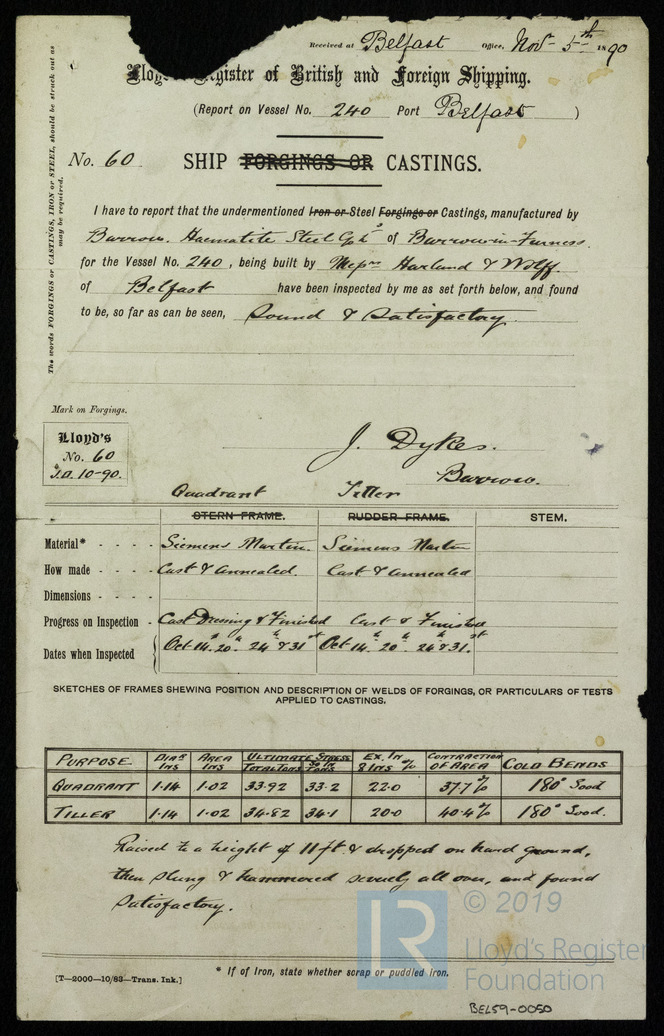 Received at Belfast Office, Novr 5th 1890
Lloyd's Register of British and Foreign Shipping.
(Report on Vessel No. 240 Port Belfast )
No. 60 SHIP FORGINGS OR CASTINGS.
The words FORGINGS or CASTINGS, IRON or STEEL, should be struck out as
may be required.
I have to report that the undermentioned Iron or Steel Forgings or Castings, manufactured by
Barrow Haematite Steel Coy Ld of Barrow-in-Furness
for the Vessel No. 240, being built by Messrs Harland & Wolff.
of Belfast have been inspected by me as set forth below, and found
to be, so far as can be seen, Sound & Satisfactory.
Mark on Forgings.
Lloyd's
No. 60
J.D. 10-90.
J. Dykes.
Barrow.
Quadrant Tiller
STERN FRAME. RUDDER FRAME. STEM.
Material* - - - - Siemens Martin. Siemens Martin
How made - - - - Cast & Annealed. Cast & Annealed
Dimensions - - - -
Progress on Inspection - Cast Dressing & Finished Cast & Finished
Dates when Inspected Oct 14. 20th 24th & 31st Oct 14th 20th 24th & 31st
SKETCHES OF FRAMES SHEWING POSITION AND DESCRIPTION OF WELDS OF FORGINGS, OR PARTICULARS OF TESTS
APPLIED TO CASTINGS.
PURPOSE DIAR INS AREA INS ULTIMATE STRESS TOTAL TONS SQ IN TONS EX. IN 8 INS % CONTRACTION OF AREA COLD BENDS
QUADRANT 1.14 1.02 33.92 33.2 22.0 37.7% 180° Good
TILLER 1.14 1.02 34.82 34.1 20.0 40.4% 180° Good.
Raised to a height of 11 ft. & dropped on hard ground,
then slung & hammered severely all over, and found
satisfactory.
© 2019
LR Lloyd's Register
Foundation
* If of Iron, state whether scrap or puddled iron.
[T—2000—10/83—Trans. Ink.]
BEL59-0050